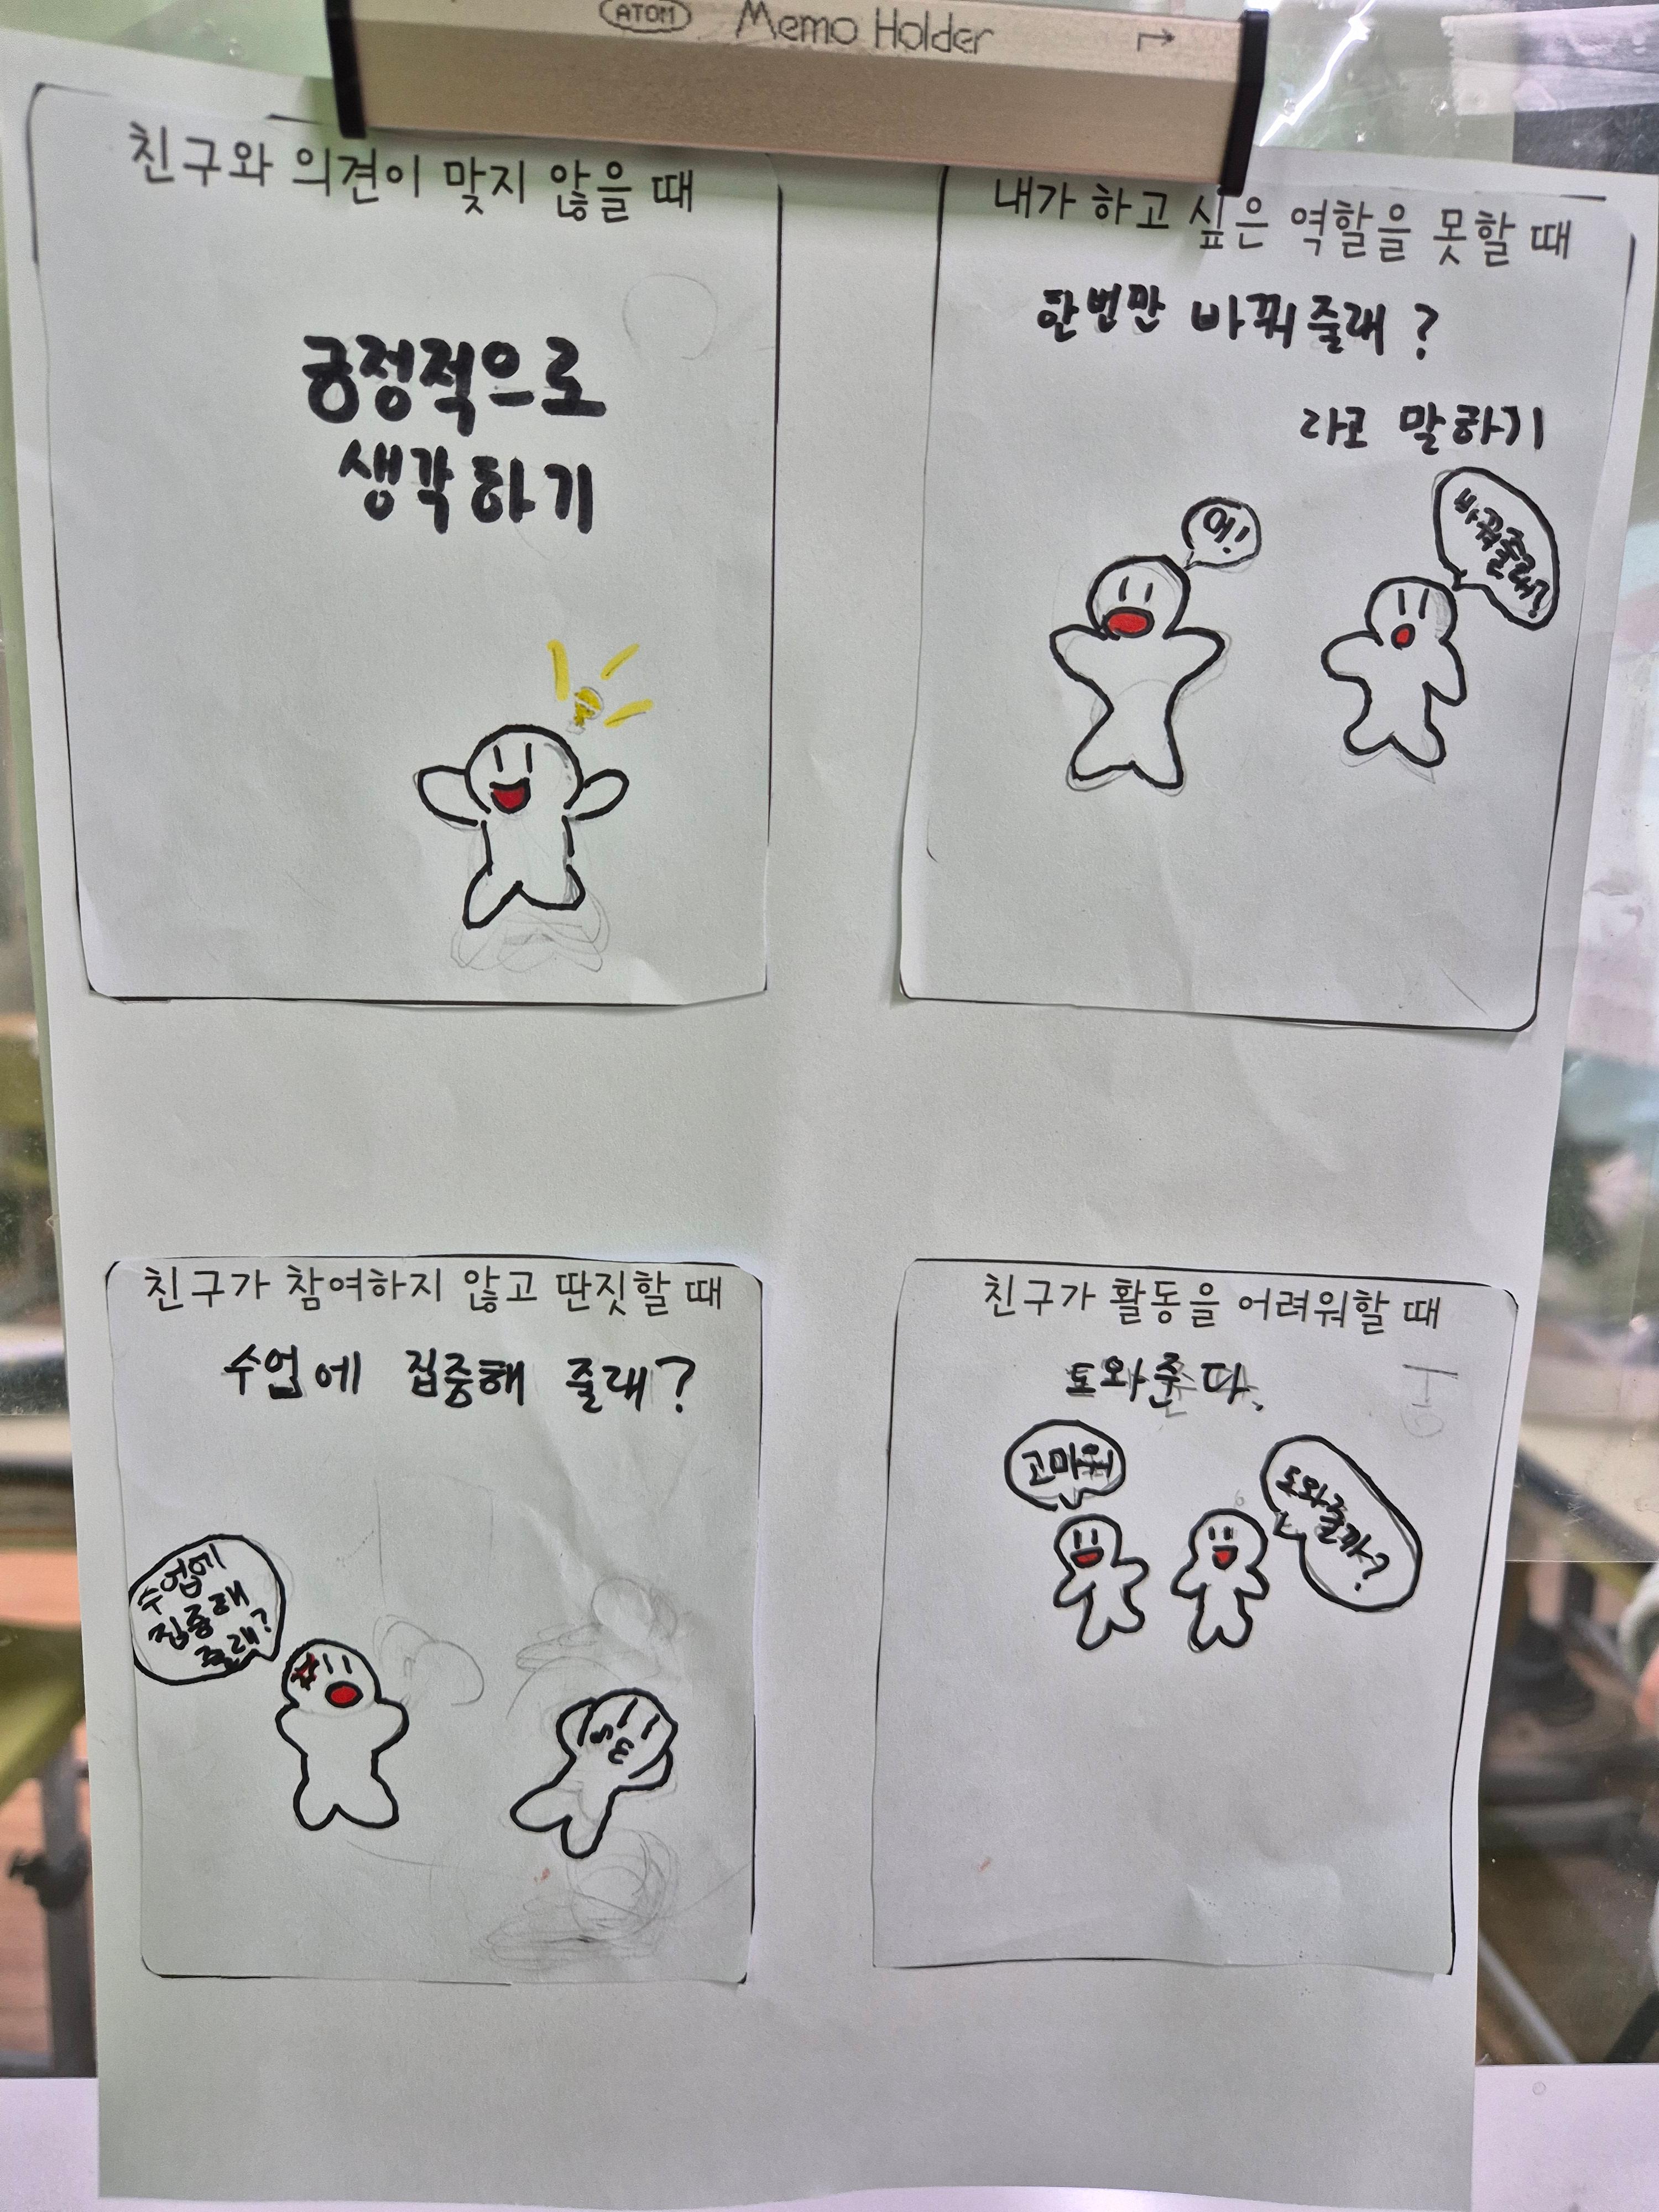 ATOM Memo Holder
친구와 의견이 맞지 않을 때
긍정적으로
생각하기
내가 하고 싶은 역할을 못할 때
한번만 바꿔줄래?
라고 말하기
어!
바꿔줄래?
친구가 참여하지 않고 딴짓할 때
수업에 집중해 줄래?
수업에
집중해
줄래?
친구가 활동을 어려워할 때
도와준다.
고마워
도와줄까?